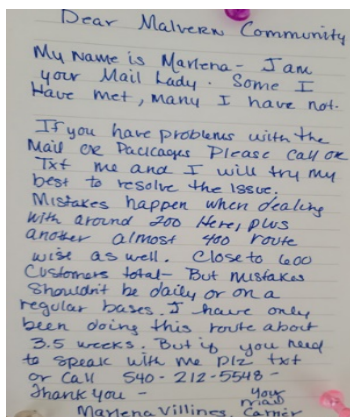 Dear Malvern Community
My Name is Marlena - I am
your Mail Lady. Some I
Have met, Many I have not.
If you have problems with the
Mail or Packages Please call or
Txt me and I will try my
best to resolve the Issue.
Mistakes happen when dealing
with around 200 Here, plus
another almost 400 route
wise as well. Close to 600
Customers total - But mistakes
shouldn't be daily or on a
regular bases. I have only
been doing this route about
3.5 weeks. But if you need
to speak with me plz txt
or call 540-212-5548 -
Thank you - your
Mail
Marlena Villines, Carrier